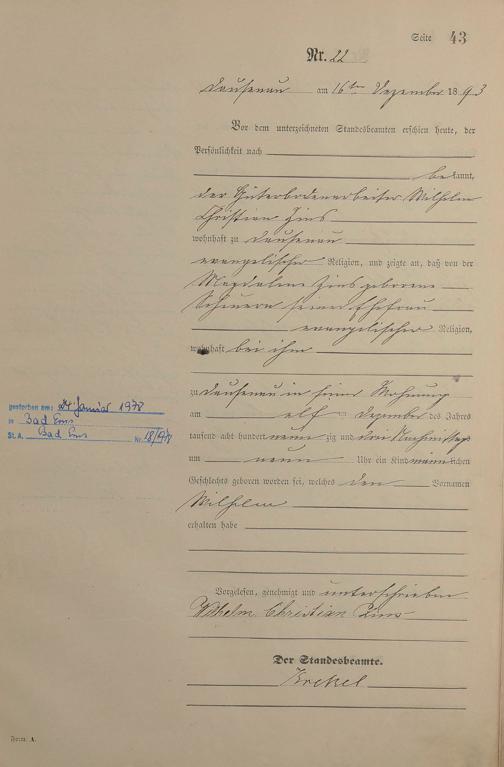 Seite 43
Nr. 22
Dausenau am 16ten Dezember 1893
Vor dem unterzeichneten Standesbeamten erschien heute, der
Persönlichkeit nach
bekannt,
der Güterbodenarbeiter Wilhelm
Christian Zins
wohnhaft zu Dausenau
evangelischer Religion, und zeigte an, daß von der
Magdalene Zins geborene
Scheuern seiner Ehefrau
evangelischer Religion,
wohnhaft bei ihm
zu Dausenau in seiner Wohnung
am elf ten Dezember des Jahres
tausend acht hundert neun zig und drei Nachmittags
um neun Uhr ein Kind männlichen
Geschlechts geboren worden sei, welches den Vornamen
Wilhelm
erhalten habe
Vorgelesen, genehmigt und unterschrieben
Wilhelm Christian Zins
Der Standesbeamte.
gestorben am: Januar 1978
in Bad Ems
St. A. Bad Ems Nr.
Form A.